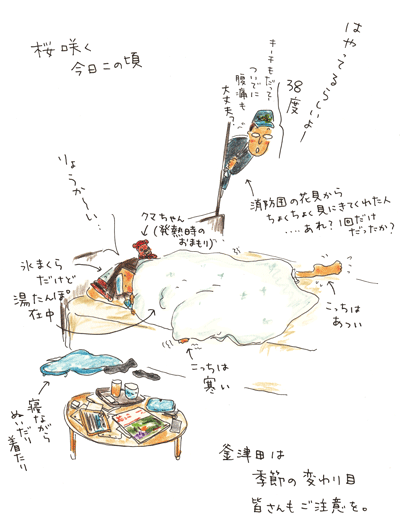 桜咲く
今日この頃
はやってるらしいよー
38度
キーチもだって
ついでに
腰痛も
大丈夫?…
消防団の花貝から
ちょくちょく貝にきてくれたん
....あれ?1回だけ
だったか?
りょうかーい…
クマちゃん
(発熱時の
おまもり)
氷まくら
だけど
湯たんぽ
在中
こっちは
あつい
こっちは
寒い
寝ながら
ぬいだり
着たり
釜津田は
季節の変わり目
皆さんもご注意を。